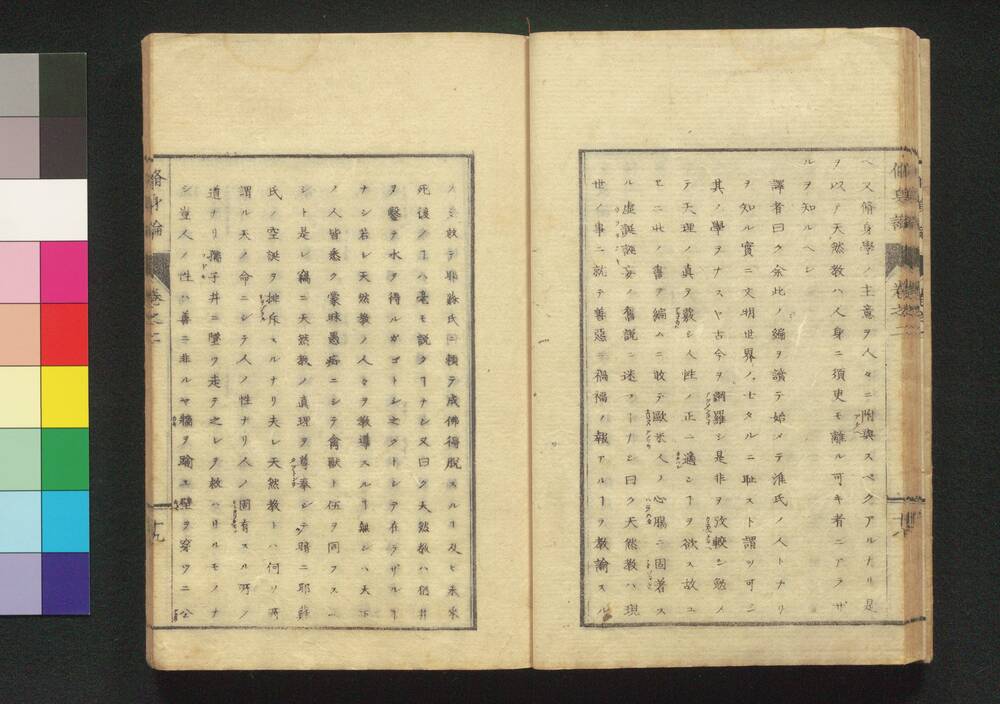 ヘ又脩身學ノ主意ヲ人々ニ附與スベクアルナリ是
ヲ以テ天然教ハ人身ニ須臾モ離ル可キ者ニアラザ
ルヲ知ルヘシ
譯者曰ク余此ノ編ヲ讀テ始メテ淮氏ノ人トナリ
ヲ知ル實ニ文明世界ノ士タルニ耻スト謂ツ可シ
其ノ學ヲナスヤ古今ヲ網羅シ是非ヲ攷較シ勉メ
テ天理ノ眞ヲ覈シ人性ノ正ニ適シヿヲ欲ス故ニ
ニ此ノ書ヲ編ムニ敢テ歐米人ノ心腸ニ固著ス
ル虚誕誣妄ノ舊説ニ迷フヿナシ曰ク天然教ハ現
世ノ事ニ就テ善惡禍福ノ報アルヿヲ教諭スル
脩身論 卷之二
ノミ敢テ耶蘇氏ニ頼テ成佛得脱スルヿ及ヒ未來
死後ノヿハ毫モ説クヿナシ又曰ク天然教ハ猶井
ヲ鑿テ水ヲ得ルガゴトシ之クトシテ在ラザルヿ
ナシ若レ天然教ノ人々ヲ教導スルヿ無シハ天下
ノ人皆悉ク蒙昧愚癡ニシテ禽獸ト伍ヲ同フスヘ
シト是レ竊ニ天然教ノ眞理ヲ尊奉シテ暗ニ耶蘇
氏ノ空誕ヲ排斥スルナリ夫レ天然教トハ何ソ所
謂ル天ノ命ニシテ人ノ性ナリ人ノ固有スル所ノ
道ナリ孺子井ニ墜ツ走テ之レヲ救ハリルモノナ
シ豈人ノ性ハ善ニ非ルヤ牆ヲ踰エ壁ヲ穿ツニ公
脩身論 卷之二 十九